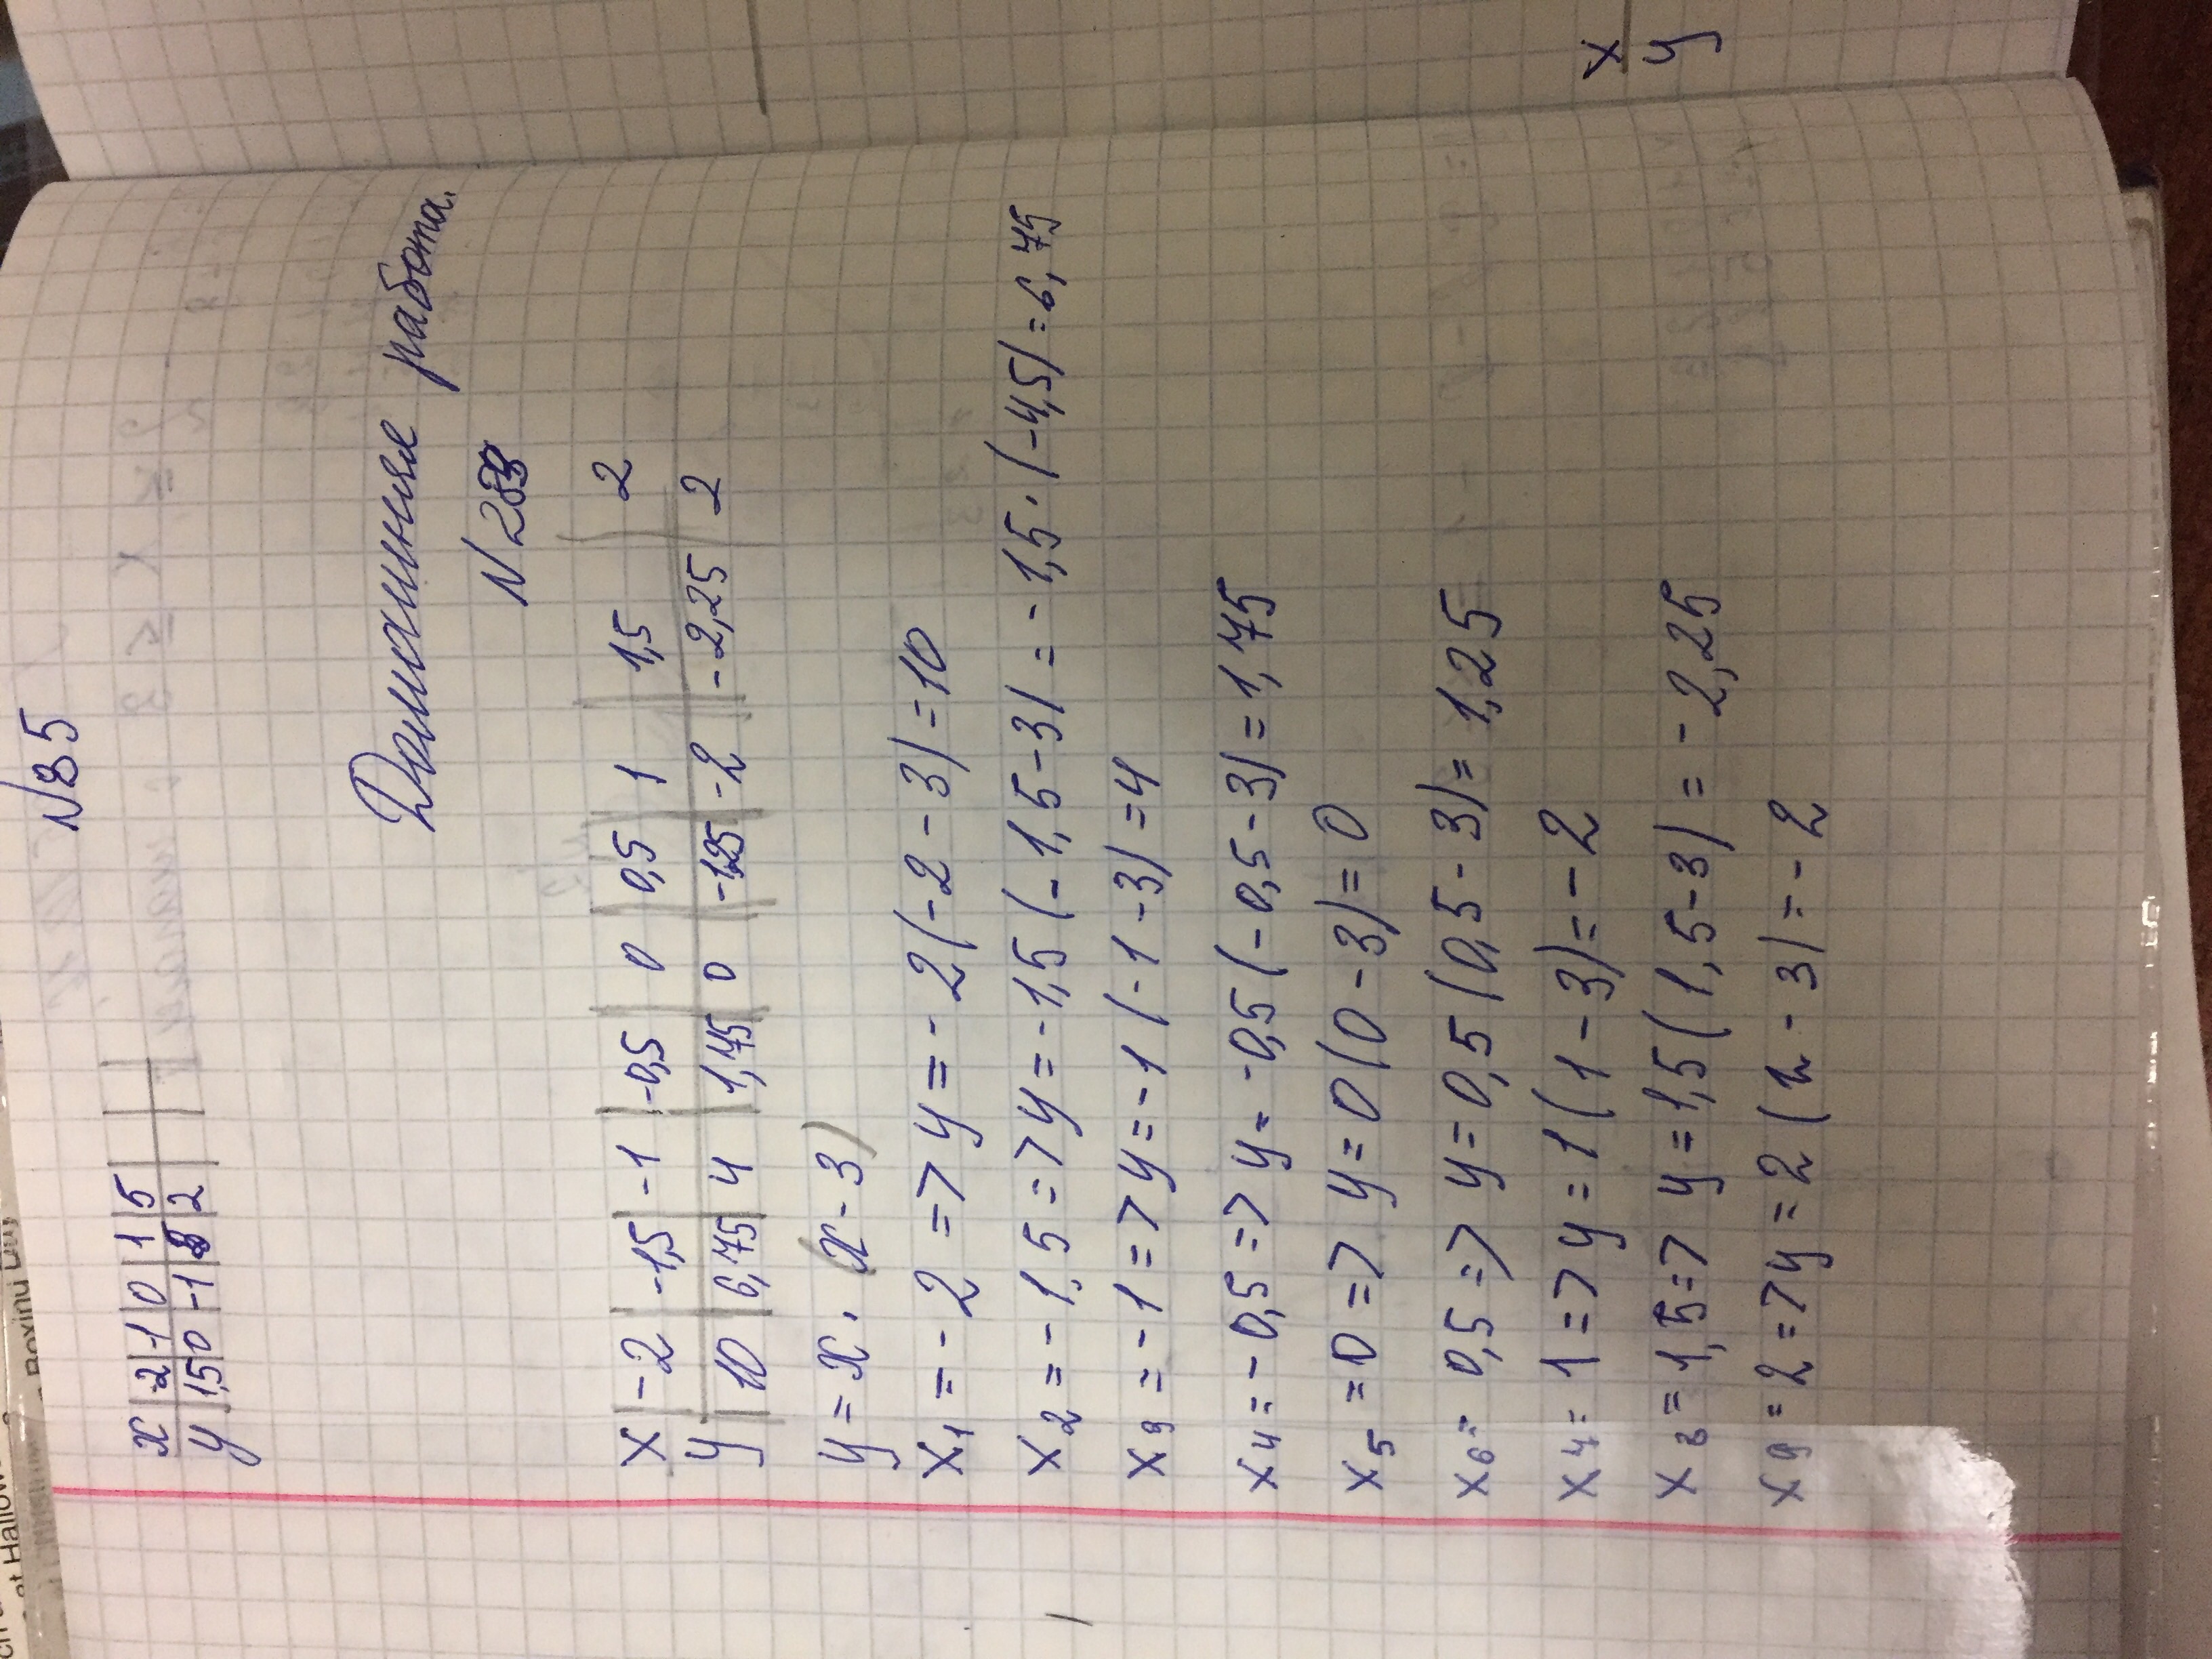 N 85
x | -2 | -1 | 0 | 1 | 5
y | 1,5 | 0 | -1 | | 2
Домашняя работа.
N 283
x | -2 | -1,5 | -1 | -0,5 | 0 | 0,5 | 1 | 1,5 | 2
y | 10 | 6,75 | 4 | 1,75 | 0 | -1,25 | -2 | -2,25 | 2
y = x · (x - 3)
x₁ = - 2 => y = - 2(-2 - 3) = 10
x₂ = - 1,5 => y = -1,5 (-1,5 - 3) = - 1,5 · (-4,5) = 6,75
x₃ = - 1 => y = - 1 (-1 - 3) = 4
x₄ = - 0,5 => y = - 0,5 (- 0,5 - 3) = 1,75
x₅ = 0 => y = 0 (0 - 3) = 0
x₆ = 0,5 => y = 0,5 (0,5 - 3) = 1,25
x₇ = 1 => y = 1 (1 - 3) = - 2
x₈ = 1,5 => y = 1,5 (1,5 - 3) = - 2,25
x₉ = 2 => y = 2 (2 - 3) = - 2
x
y